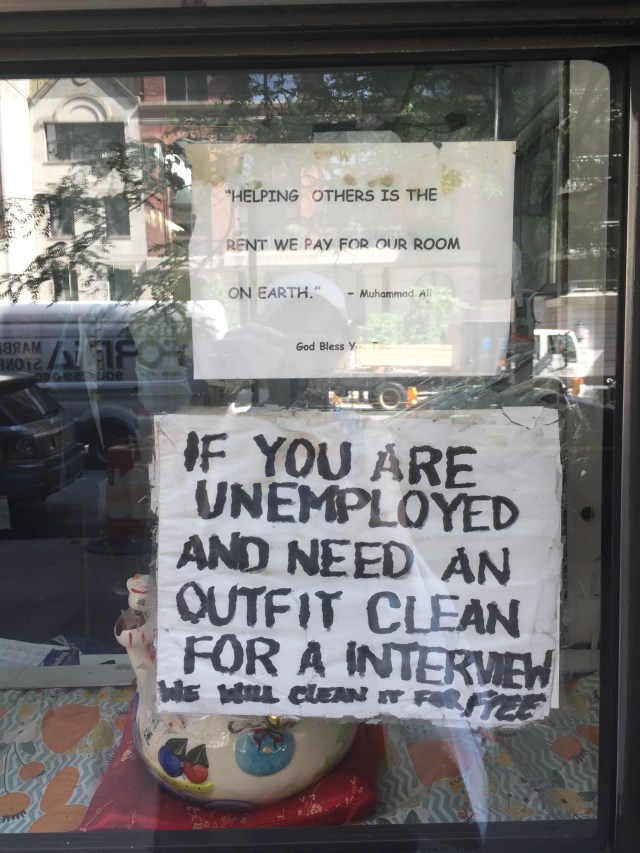 "HELPING OTHERS IS THE
RENT WE PAY FOR OUR ROOM
ON EARTH." - Muhammad Ali
God Bless
IF YOU ARE
UNEMPLOYED
AND NEED AN
OUTFIT CLEAN
FOR A INTERVIEW
WE WILL CLEAN IT FOR FREE